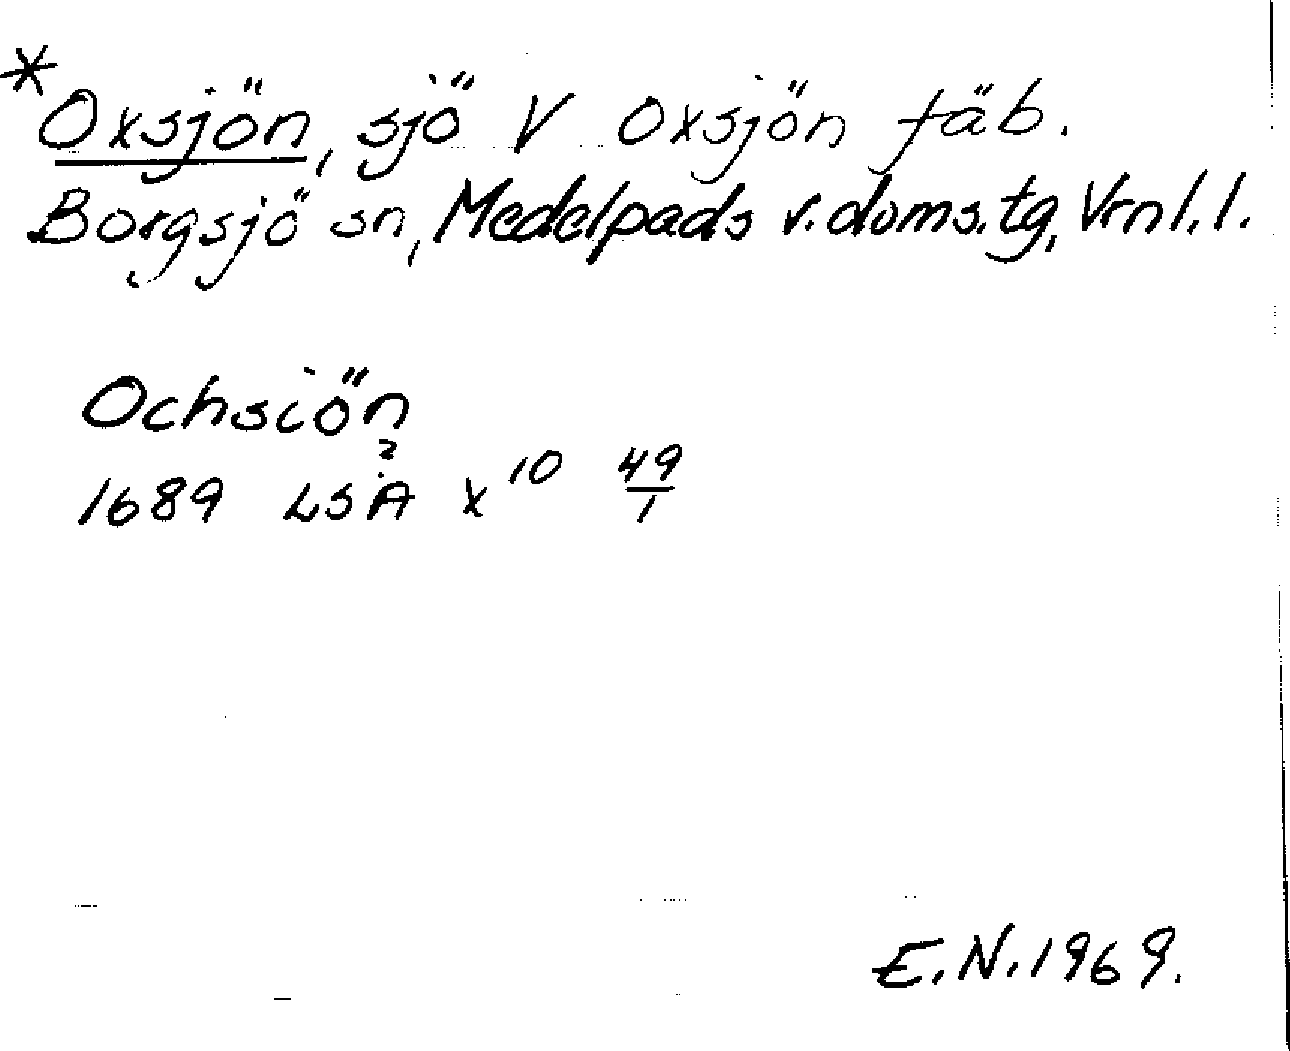 *Oxsjön, sjö V Oxsjön fäb.
Borgsjö sn, Medelpads v. doms.tg, Vrnl.l.
Ochsiön
1689 LSA X¹⁰ 49/1
E.N. 1969.